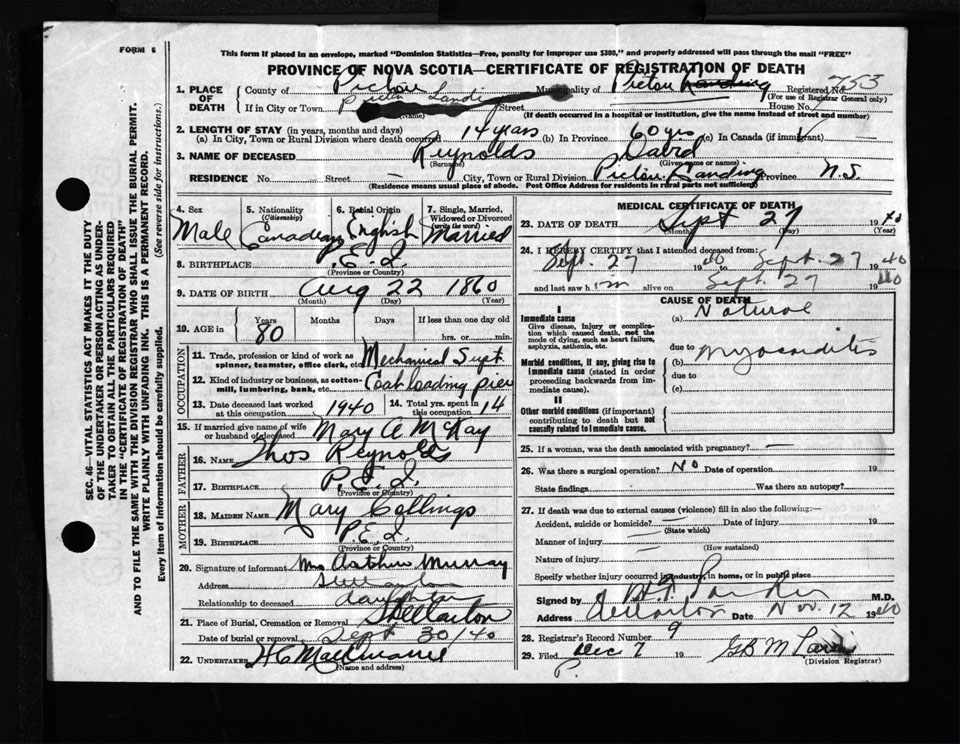 FORM 6
This form if placed in an envelope, marked "Dominion Statistics—Free, penalty for improper use $300," and properly addressed will pass through the mail "FREE"
PROVINCE OF NOVA SCOTIA—CERTIFICATE OF REGISTRATION OF DEATH
1. PLACE OF DEATH County of Pictou Municipality of Pictou Landing Registered No. 753
(For use of Registrar General only)
If in City or Town Pictou Landing Street House No.
(Name) (If death occurred in a hospital or institution, give the name instead of street and number)
2. LENGTH OF STAY (in years, months and days)
(a) In City, Town or Rural Division where death occurred 14 years (b) In Province 60 yrs (c) In Canada (if immigrant)
3. NAME OF DECEASED Reynolds David
(Surname) (Given name or names)
RESIDENCE No. Street — City, Town or Rural Division Pictou Landing Province N.S.
(Residence means usual place of abode. Post Office Address for residents in rural parts not sufficient)
4. Sex Male
5. Nationality (Citizenship) Canadian
6. Racial Origin English
7. Single, Married, Widowed or Divorced (write the word) Married
8. BIRTHPLACE P.E.I.
(Province or Country)
9. DATE OF BIRTH Aug 22 1860
(Month) (Day) (Year)
10. AGE in Years 80 Months Days If less than one day old
hrs. or min.
OCCUPATION
11. Trade, profession or kind of work as spinner, teamster, office clerk, etc. Mechanical Supt.
12. Kind of industry or business, as cotton-mill, lumbering, bank, etc. Coal loading pier
13. Date deceased last worked at this occupation 1940
14. Total yrs. spent in this occupation 14
15. If married give name of wife or husband of deceased Mary A McKay
FATHER
16. Name Thos Reynolds
17. Birthplace P.E.I.
(Province or Country)
MOTHER
18. Maiden Name Mary Collings
19. Birthplace P.E.I.
(Province or Country)
20. Signature of informant Mrs Arthur Murray
Address
Relationship to deceased daughter
21. Place of Burial, Cremation or Removal Stellarton
Date of burial or removal Sept 30/40
22. UNDERTAKER
(Name and address)
MEDICAL CERTIFICATE OF DEATH
23. DATE OF DEATH Sept 27 1940
(Month) (Day) (Year)
24. I HEREBY CERTIFY that I attended deceased from:
Sept. 27 1940 to Sept. 27 1940
and last saw him alive on Sept. 27 1940
CAUSE OF DEATH
Immediate cause (a) Natural
Give disease, injury or complication which caused death, not the mode of dying, such as heart failure, asphyxia, asthenia, etc.
due to
Morbid conditions, if any, giving rise to immediate cause (stated in order proceeding backwards from immediate cause).
(b) Myocarditis
due to
(c)
II
Other morbid conditions (if important) contributing to death but not causally related to immediate cause.
25. If a woman, was the death associated with pregnancy? —
26. Was there a surgical operation? No Date of operation 19
State findings Was there an autopsy?
27. If death was due to external causes (violence) fill in also the following:—
Accident, suicide or homicide? Date of injury 19
(State which)
Manner of injury
(How sustained)
Nature of injury
Specify whether injury occurred in industry, in home, or in public place
Signed by M.D.
Address Stellarton Date Nov. 12 1940
28. Registrar's Record Number 9
29. Filed Dec 7 19
(Division Registrar)
SEC. 46—VITAL STATISTICS ACT MAKES IT THE DUTY
OF THE UNDERTAKER OR PERSON ACTING AS UNDER-
TAKER TO OBTAIN ALL THE PARTICULARS REQUIRED
IN THE "CERTIFICATE OF REGISTRATION OF DEATH"
AND TO FILE THE SAME WITH THE DIVISION REGISTRAR WHO SHALL ISSUE THE BURIAL PERMIT.
WRITE PLAINLY WITH UNFADING INK. THIS IS A PERMANENT RECORD.
Every item of information should be carefully supplied. (See reverse side for instructions.)